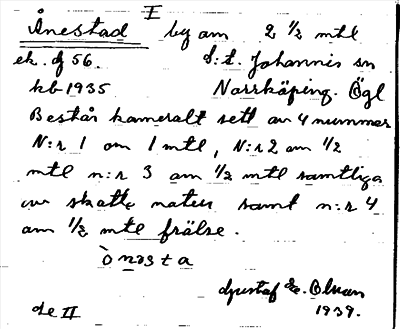 I
Ånestad by om 2 ½ mtl
ek. bl 56. S:t. Johannis sn
kb 1935 Norrköping. Ögl
Består kameralt sett av 4 nummer
N:r 1 om 1 mtl, N:r 2 om ½
mtl n:r 3 om ½ mtl samtliga
av skatte natur samt n:r 4
om ½ mtl frälse.
ònəsta
Gustaf Ohman
1939.
de II